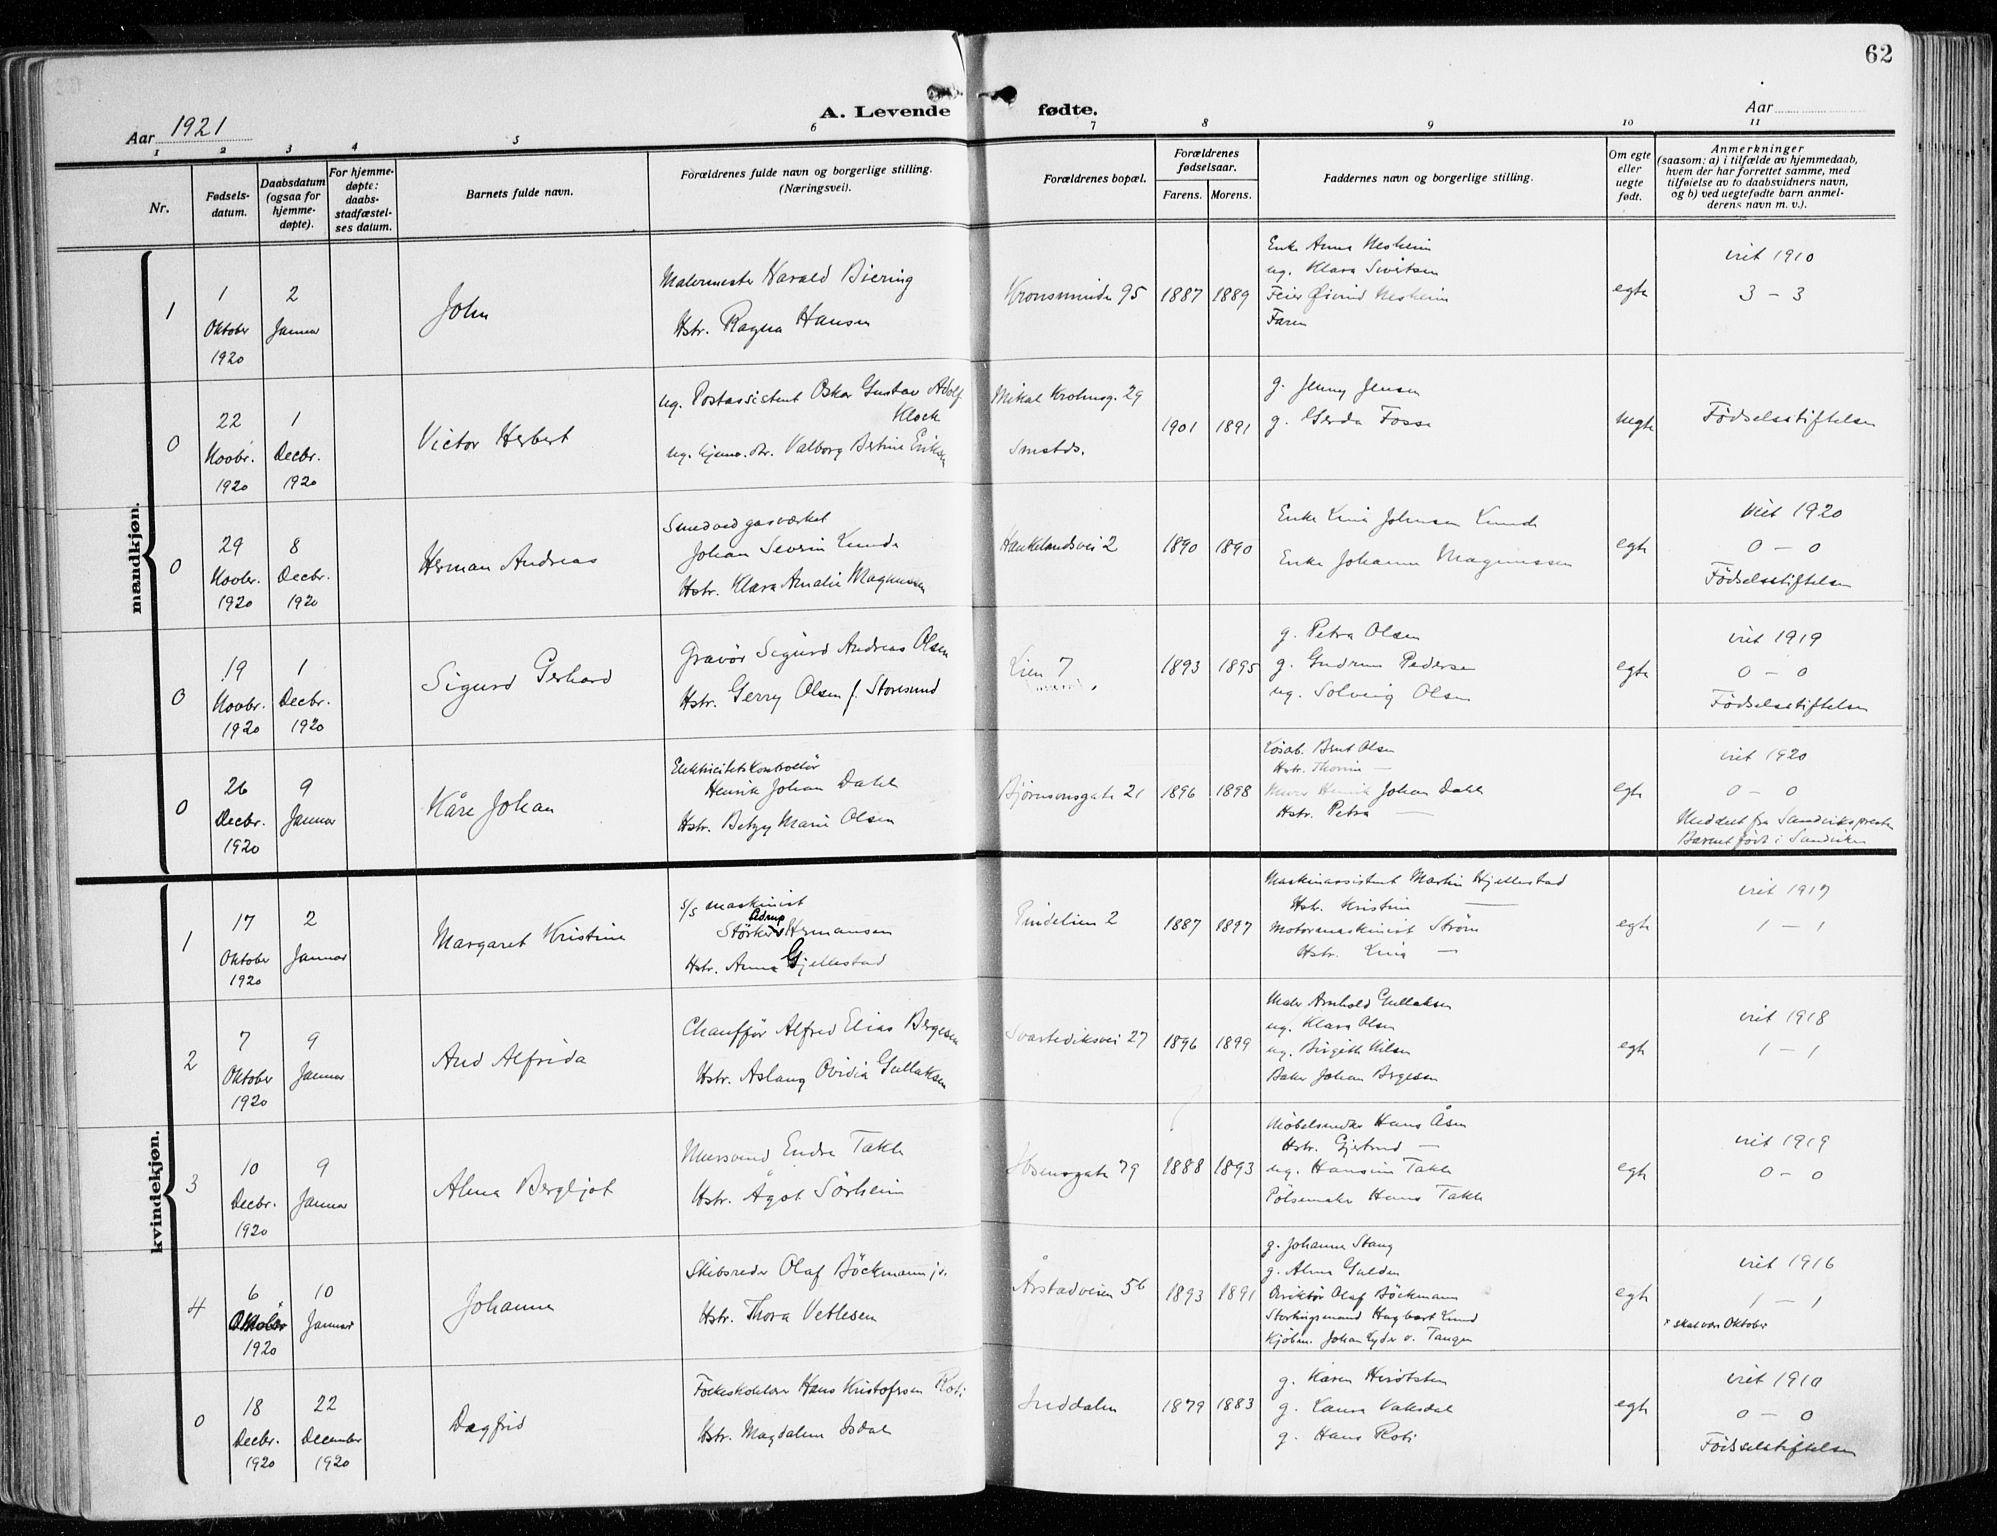 62
A. Levende fødte.
Aar 1921
Aar
1 2 3 4 5 6 7 8 9 10 11
Nr.
Fødsels-datum.
Daabsdatum (ogsaa for hjemme-døpte).
For hjemme-døpte: daabs-stadfæstel-ses datum.
Barnets fulde navn.
Forældrenes fulde navn og borgerlige stilling. (Næringsvei).
Forældrenes bopæl.
Forældrenes fødselsaar.
Farens. Morens.
Faddernes navn og borgerlige stilling.
Om egte eller uegte født.
Anmerkninger
(saasom: a) i tilfælde av hjemmedaab,
hvem der har forrettet samme, med
tilføielse av to daabsvidners navn,
og b) ved uegtefødte barn anmel-
derens navn m. v.).
mandkjøn.
1
1 Oktober 1920
2 Januar
John
Malermester Harald Biering
Hstr. Ragna Hansen
Kronsminde 95
1887 1889
Enke Anna Nesheim
ug. Klara Sivertsen
Feier Øivind Nesheim
Faren
egte
viet 1910
3 – 3
0
22 Novbr. 1920
1 Decbr. 1920
Victor Herbert
ug. Postassistent Oskar Gustav Adolf
Klock
ug. hjemv. str. Valborg Bertine Eriksen
Mikal Krohnsg. 29
Smstds.
1901 1891
g. Jenny Jensen
g. Gerda Fosse
uegte
Fødselsstiftelsen
0
29 Novbr. 1920
8 Decbr. 1920
Herman Andreas
Smed ved gasværket
Johan Severin Lunde
Hstr. Klara Amalie Magnussen
Haukelandsvei 2
1890 1890
Enke Lina Johnsen Lunde
Enke Johanne Magnussen
egte
viet 1920
0 – 0
Fødselsstiftelsen
0
19 Novbr. 1920
1 Decbr. 1920
Sigurd Gerhard
Gravør Sigurd Andreas Olsen
Hstr. Gerry Olsen f. Storesund
Lien 7
1893 1895
g. Petra Olsen
g. Gudrun Pedersen
ug. Solveig Olsen
egte
viet 1919
0 – 0
Fødselsstiftelsen
0
26 Decbr. 1920
9 Januar
Kåre Johan
Elektricitetskontrollør
Henrik Johan Dahle
Hstr. Betzy Marie Olsen
Bjørnsonsgate 21
1896 1898
Løsab. Bent Olsen
Hstr. Thorine —
Murer Henrik Johan Dahle
Hstr. Petra —
egte
viet 1920
0 – 0
Meddelt fra Sandvikspresten
Barnet født i Sandviken
kvindekjøn.
1
17 Oktober 1920
2 Januar
Margaret Kristine
s/s maskinist
Adrup
Størker Hermansen
Hstr. Anna Gjellestad
Pindelien 2
1887 1897
Maskinassistent Martin Hjellestad
Hstr. Kristine —
Motormaskinist Strøm
Hstr. Lina —
egte
viet 1917
1 – 1
2
7 Oktober 1920
9 Januar
Aud Alfrida
Chauffør Alfred Elias Bergesen
Hstr. Aslaug Ovidia Gullaksen
Svartediksvei 27
1896 1899
Maler Arnhold Gullaksen
ug. Klara Olsen
ug. Birgitte Nilsen
Baker Johan Bergesen
egte
viet 1918
1 – 1
3
10 Decbr. 1920
9 Januar
Alma Bergljot
Mursvend Endre Takle
Hstr. Ågot Sørheim
Ibsensgate 79
1888 1893
Møbelsnedker Hans Åsen
Hstr. Gjertrud —
ug. Hansine Takle
Pølsemaker Hans Takle
egte
viet 1919
0 – 0
4
6 Oktober x 1920
10 Januar
Johanne
Skibsreder Olaf Böckmann jr.
Hstr. Thora Vetlesen
Årstadveien 56
1893 1891
g. Johanne Stang
g. Alma Gulden
Direktør Olaf Böckmann
Stortingsmand Hagbart Lund
Kjøbm. Johan Lyder v. Tangen
egte
viet 1916
1 – 1
x skal være Oktober
0
18 Decbr. 1920
22 December 1920
Dagfrid
Folkeskolelærer Hans Kristofersen Roti
Hstr. Magdalene Isdal
Inddalen
1879 1883
g. Karen Herolsten
g. Laura Vaksdal
g. Hans Roti
egte
viet 1910
0 – 0
Fødselsstiftelsen